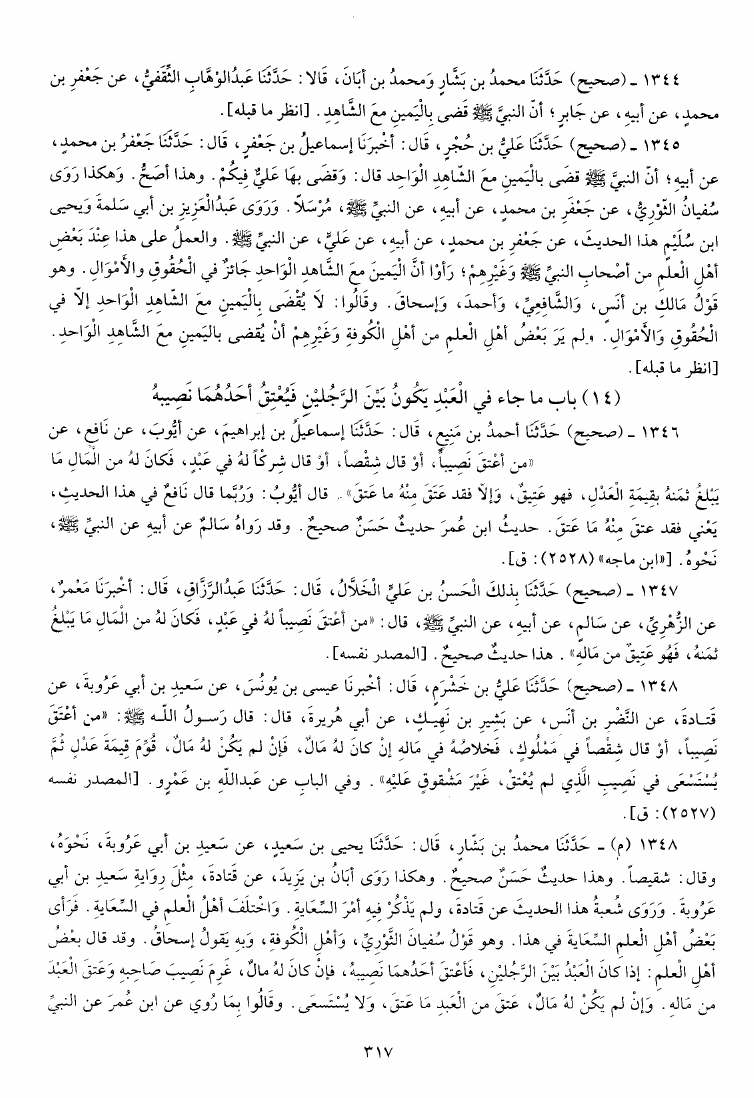 ١٣٤٤ ـ (صحيح) حَدَّثَنَا محمدُ بن بَشَّارٍ وَمحمدُ بن أبَانَ، قَالا: حَدَّثَنَا عَبدُالوْهَّابِ الثَّقَفيُّ، عن جَعْفرِ بن
محمدٍ، عن أبيهِ، عن جَابرٍ؛ أنّ النبيَّ ﷺ قَضَى بِالْيَمينِ مَعَ الشَّاهِدِ. [انظر ما قبله].
١٣٤٥ ـ (صحيح) حَدَّثَنَا عَليُّ بن حُجْرٍ، قَال: أخْبرَنَا إسماعيلُ بن جَعْفرٍ، قَال: حَدَّثَنَا جَعْفَرُ بن محمدٍ،
عن أبيهِ؛ أنّ النبيَّ ﷺ قضَى بالْيَمينِ مَعَ الشَّاهدِ الْوَاحِدِ قال: وَقضَى بهَا عَليٌّ فِيكُمْ. وهذا أصَحُّ. وَهكذا رَوَى
سُفيانُ الثّوْرِيُّ، عن جَعْفَرِ بن محمدٍ، عن أبيهِ، عن النبيِّ ﷺ، مُرْسَلاً. وَرَوَى عَبدُالْعَزِيزِ بن أبي سَلمةَ وَيحيى
ابن سُلَيْمٍ هذا الحديثَ، عن جَعْفرِ بن محمدٍ، عن أبيهِ، عن عَليٍّ، عن النبيِّ ﷺ. والعملُ على هذا عِنْدَ بَعْضِ
أهْلِ الْعلْمِ من أصْحابِ النبيِّ ﷺ وَغَيْرِهِمْ؛ رَأَوْا أنَّ الْيَمينَ مَعَ الشَّاهِدِ الْوَاحدِ جَائزٌ في الْحُقُوقِ والأمْوَالِ. وهو
قَوْلُ مَالكِ بن أنَسٍ، وَالشَّافعِيِّ، وَأحمدَ، وَإسحاقَ. وقالُوا: لاَ يُقْضَى بِالْيَمينِ مَعَ الشّاهِدِ الْوَاحدِ إلاّ في
الْحُقُوقِ وَالأمْوَالِ. ولم يَرَ بَعْضُ أهْلِ العلمِ من أهْلِ الْكُوفةِ وَغَيْرِهِمْ أنْ يُقضى باليَمينِ مَعَ الشّاهدِ الْوَاحدِ.
[انظر ما قبله].
(١٤) باب ما جاء في الْعَبْدِ يَكُونُ بَيْنَ الرَّجُليْنِ فَيُعْتِقُ أحَدُهُمَا نَصِيبهُ
١٣٤٦ ـ (صحيح) حَدَّثَنَا أحمدُ بن مَنِيعٍ، قَال: حَدَّثَنَا إسماعيلُ بن إبراهيمَ، عن أيُّوبَ، عن نَافعٍ، عن
«من أعْتقَ نَصِيباً، أوْ قال شِقْصاً، أوْ قال شِركْاً لهُ في عَبْدٍ، فَكَانَ لهُ من الْمَالِ مَا
يَبْلغُ ثمَنهُ بِقِيمَةِ الْعَدْلِ، فهو عَتِيقٌ، وَإلاَّ فقد عَتَقَ مِنْهُ ما عَتقَ». قال أيُّوبُ: وَرُبَّما قال نَافعٌ في هذا الحديثِ،
يَعْني فقد عتقَ مِنْهُ مَا عَتقَ. حديثُ ابن عُمرَ حديثٌ حَسَنٌ صحيحٌ. وقد رَواهُ سَالمٌ عن أبيهِ عن النبيِّ ﷺ،
نَحْوهُ. [«ابن ماجه» (٢٥٢٨): ق].
١٣٤٧ ـ (صحيح) حَدَّثَنَا بِذلكَ الْحَسنُ بن عَليٍّ الْخَلَّالُ، قَال: حَدَّثَنَا عَبدُالرَّزاقِ، قَال: أخْبرَنَا مَعْمرٌ،
عن الزُّهْرِيِّ، عن سَالمٍ، عن أبيهِ، عن النبيِّ ﷺ، قال: «من أعْتقَ نَصِيباً لهُ في عَبْدٍ، فَكَانَ لهُ من الْمَالِ مَا يَبْلغُ
ثمَنهُ، فَهُو عَتِيقٌ من مَالهِ». هذا حديثٌ صحيحٌ. [المصدر نفسه].
١٣٤٨ ـ (صحيح) حَدَّثَنَا عَليُّ بن خَشْرَمٍ، قَال: أخْبرنَا عيسى بن يُونُسَ، عن سَعِيدِ بن أبي عَرُوبةَ، عن
قَتـادةَ، عن النَّضْرِ بن أنَسٍ، عن بَشِيرِ بن نَهِيـكٍ، عن أبي هُريرةَ، قال: قال رَسـولُ اللـه ﷺ: «من أعْتَقَ
نَصِيباً، أوْ قال شِقْصاً في مَمْلُوكٍ، فَخلاصُهُ في مَالهِ إنْ كانَ لهُ مَالٌ، فَإنْ لم يَكُنْ لهُ مَالٌ، قُوِّمَ قِيمَةَ عَدْلٍ ثُمَّ
يُسْتَسْعَى في نَصِيبِ الَّذِي لم يُعْتقْ، غَيْرَ مَشْقوقٍ عَليْهِ». وفي البابِ عن عَبداللّهِ بن عَمْرٍو. [المصدر نفسه
(٢٥٢٧): ق].
١٣٤٨ (م) ـ حَدَّثَنَا محمدُ بن بَشَّارٍ، قَال: حَدَّثَنَا يحيى بن سَعيدٍ، عن سَعِيدِ بن أبي عَرُوبةَ، نَحْوَهُ،
وقال: شقيصاً. وهذا حديثٌ حَسَنٌ صحيحٌ. وهكذا رَوَى أبَانُ بن يَزِيدَ، عن قَتادةَ، مِثْلَ رِوايَةِ سَعِيدِ بن أبي
عَرُوبةَ. وَرَوَى شُعبةُ هذا الحديثَ عن قَتادةَ، ولم يَذْكُرْ فِيهِ أمْرَ السِّعَايةِ. وَاخْتلَفَ أهْلُ العلمِ في السِّعَايةِ. فَرَأى
بَعْضُ أهْلِ العلمِ السِّعَايةَ في هذا. وهو قَوْلُ سُفيانَ الثَّوْرِيِّ، وَأهْلِ الْكُوفةِ، وَبِهِ يَقولُ إسحاقُ. وقد قال بعْضُ
أهْلِ العلمِ: إذا كانَ الْعَبْدُ بَيْنَ الرَّجُليْنِ، فَأعْتقَ أحَدُهُمَا نَصِيبهُ، فإنْ كانَ لهُ مالٌ، غَرِمَ نَصِيبَ صَاحِبهِ وَعَتقَ الْعَبْدُ
من مَالهِ. وَإنْ لم يَكُنْ لهُ مَالٌ، عَتقَ من الْعَبدِ مَا عَتقَ، وَلا يُسْتَسعى. وقالُوا بِمَا رُوي عن ابن عُمرَ عن النبيِّ
٣١٧